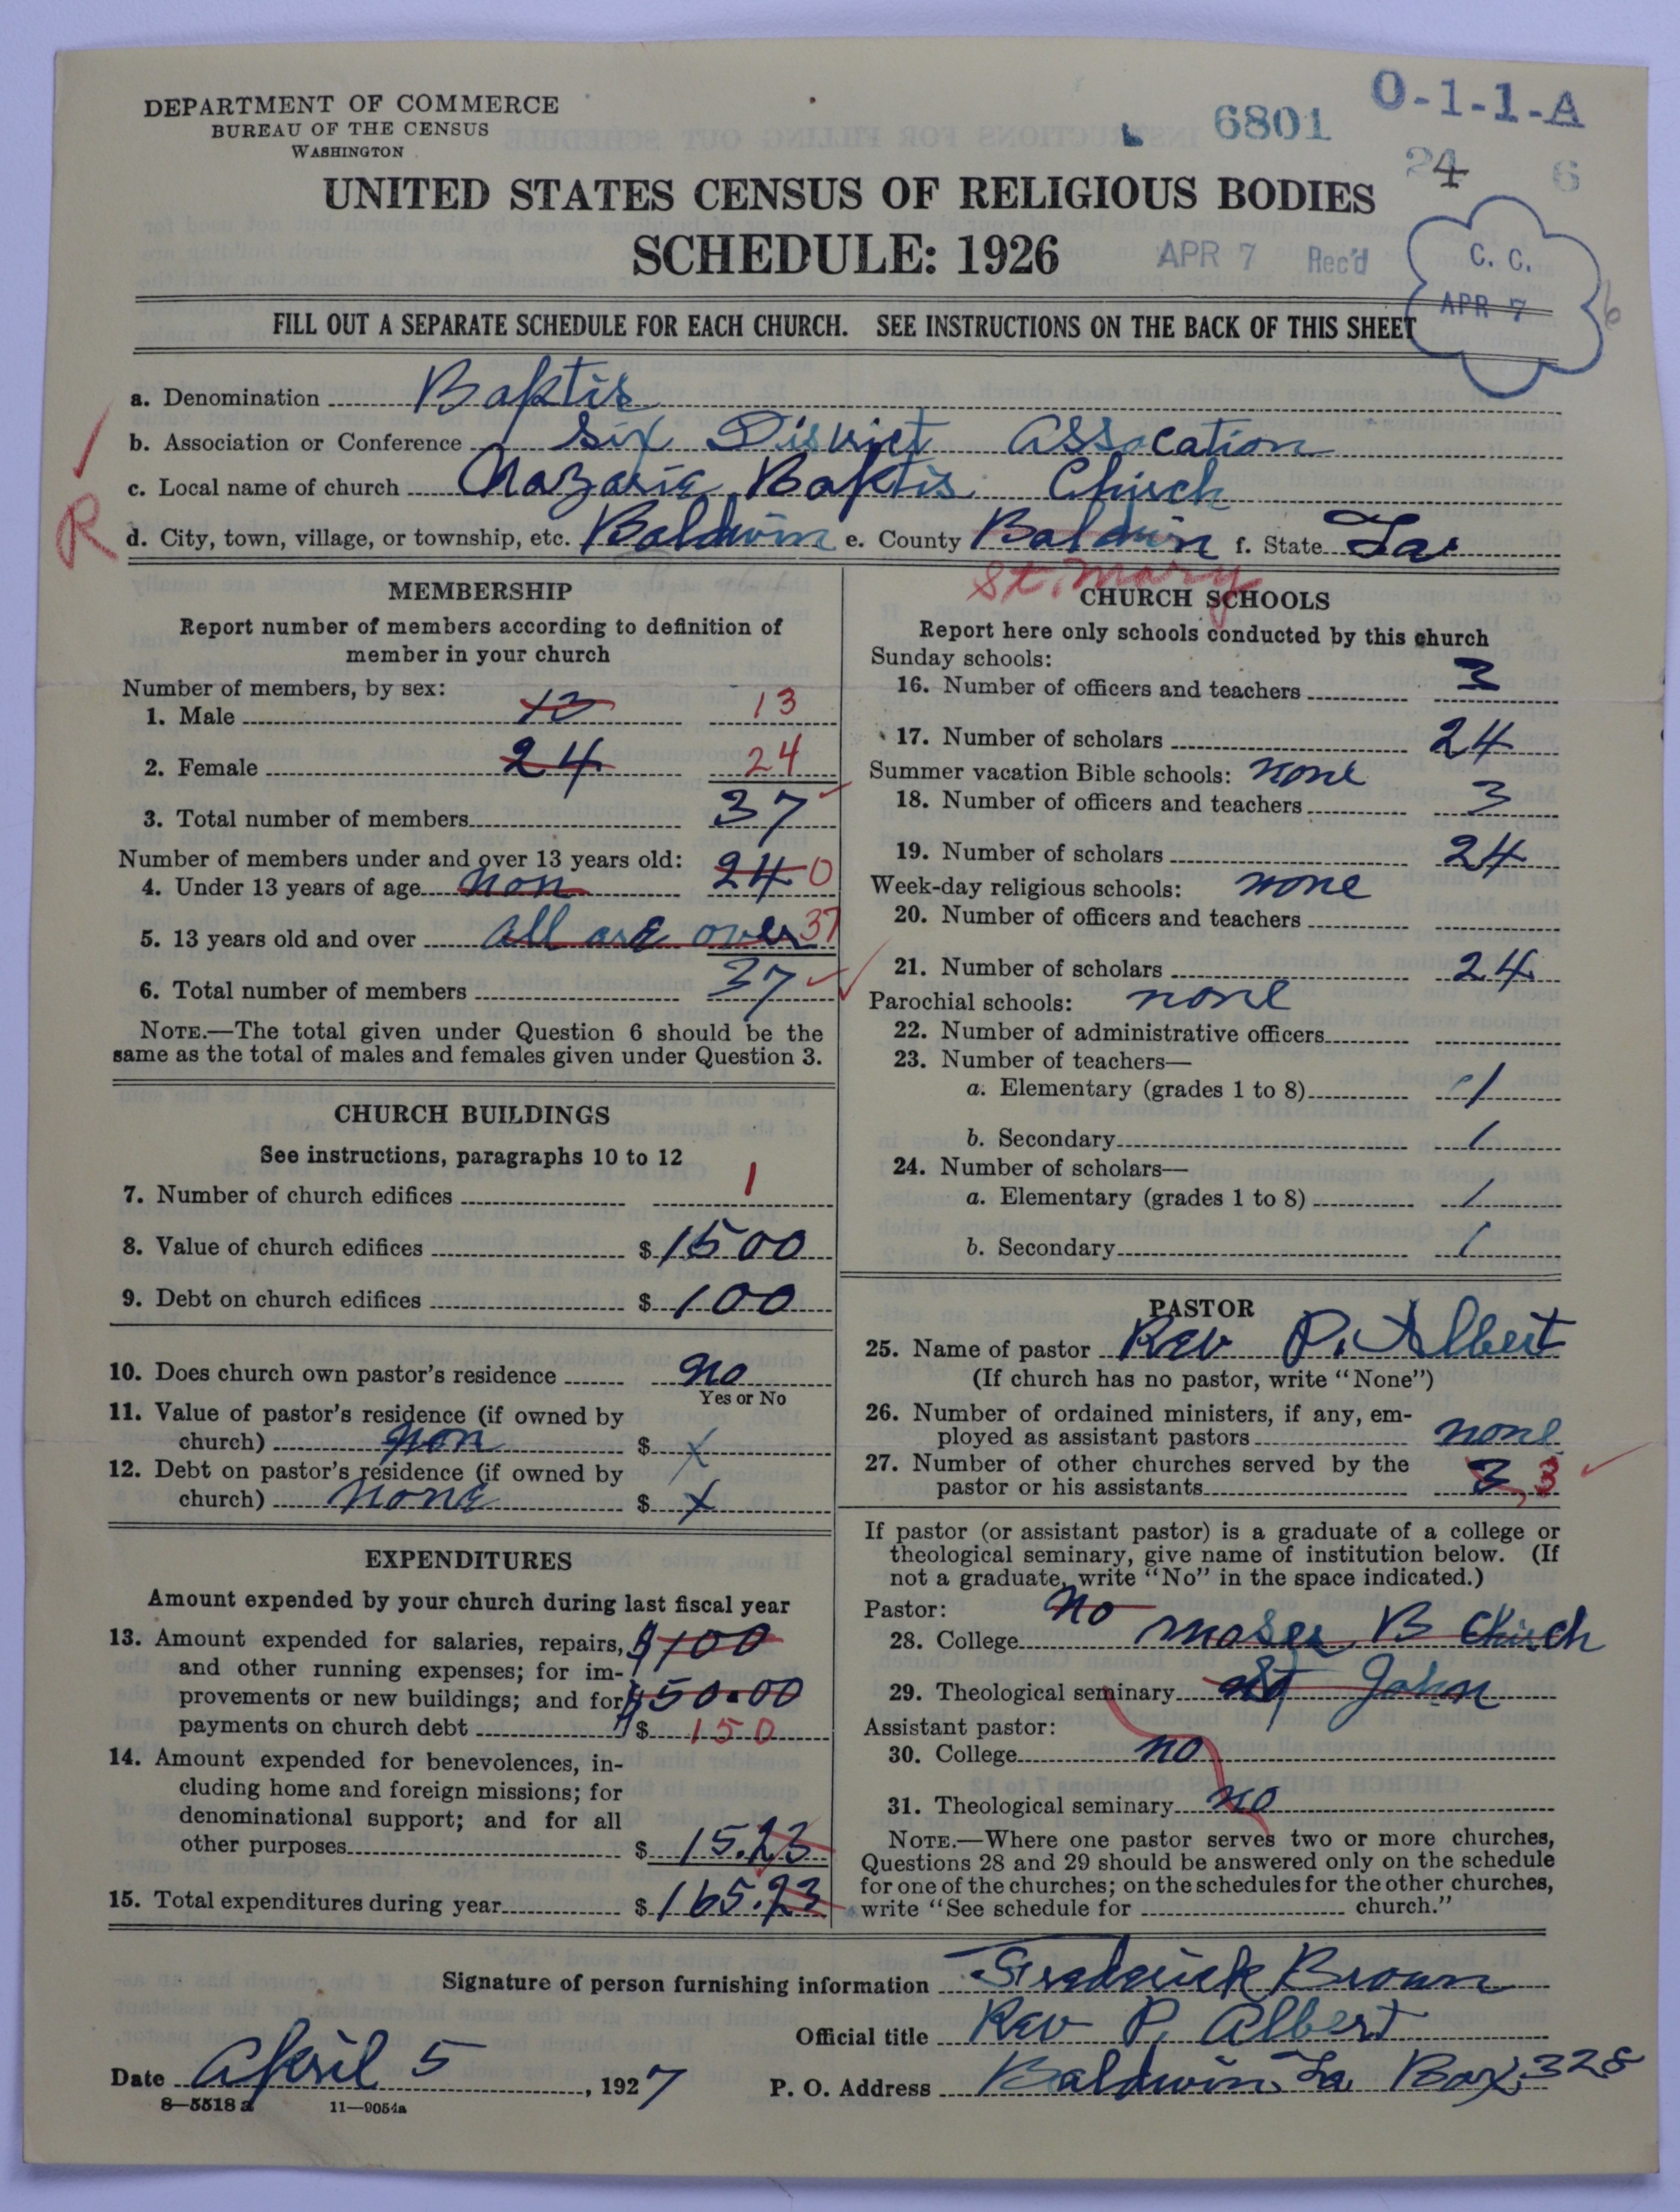 DEPARTMENT OF COMMERCE
BUREAU OF THE CENSUS
WASHINGTON
6801
O-1-1-A
24 6
UNITED STATES CENSUS OF RELIGIOUS BODIES
SCHEDULE: 1926
APR 7 Rec'd
C. C.
APR 7
FILL OUT A SEPARATE SCHEDULE FOR EACH CHURCH. SEE INSTRUCTIONS ON THE BACK OF THIS SHEET
a. Denomination Baptis
b. Association or Conference Six District assocation
c. Local name of church Nazarie Baptis Chirch
R
d. City, town, village, or township, etc. Baldwin e. County Baldwin f. State La
St. Mary
MEMBERSHIP
Report number of members according to definition of
member in your church
Number of members, by sex:
1. Male 13 13
2. Female 24 24
3. Total number of members 37
Number of members under and over 13 years old: 24 0
4. Under 13 years of age non
5. 13 years old and over all are over 37
6. Total number of members 37
NOTE.—The total given under Question 6 should be the
same as the total of males and females given under Question 3.
CHURCH BUILDINGS
See instructions, paragraphs 10 to 12
7. Number of church edifices 1
8. Value of church edifices $ 1500
9. Debt on church edifices $ 100
10. Does church own pastor's residence no
Yes or No
11. Value of pastor's residence (if owned by
church) non $ x
12. Debt on pastor's residence (if owned by
church) none $ x
EXPENDITURES
Amount expended by your church during last fiscal year
13. Amount expended for salaries, repairs, $100
and other running expenses; for im-
provements or new buildings; and for $50.00
payments on church debt $ 150
14. Amount expended for benevolences, in-
cluding home and foreign missions; for
denominational support; and for all
other purposes $ 15.23
15. Total expenditures during year $ 165.23
CHURCH SCHOOLS
Report here only schools conducted by this church
Sunday schools:
16. Number of officers and teachers 3
17. Number of scholars 24
Summer vacation Bible schools: none
18. Number of officers and teachers 3
19. Number of scholars 24
Week-day religious schools: none
20. Number of officers and teachers
21. Number of scholars 24
Parochial schools: none
22. Number of administrative officers
23. Number of teachers—
a. Elementary (grades 1 to 8) 1
b. Secondary 1
24. Number of scholars—
a. Elementary (grades 1 to 8) 1
b. Secondary 1
PASTOR
25. Name of pastor Rev P. Albert
(If church has no pastor, write "None")
26. Number of ordained ministers, if any, em-
ployed as assistant pastors none
27. Number of other churches served by the
pastor or his assistants 3 3
If pastor (or assistant pastor) is a graduate of a college or
theological seminary, give name of institution below. (If
not a graduate, write "No" in the space indicated.)
Pastor: no
28. College Moses B Chirch
29. Theological seminary St John
Assistant pastor:
30. College no
31. Theological seminary no
NOTE.—Where one pastor serves two or more churches,
Questions 28 and 29 should be answered only on the schedule
for one of the churches; on the schedules for the other churches,
write "See schedule for church."
Signature of person furnishing information Frederick Brown
Official title Rev P. Albert
Date April 5, 1927 P. O. Address Baldwin La Box 328
8—5518 a 11—9054a